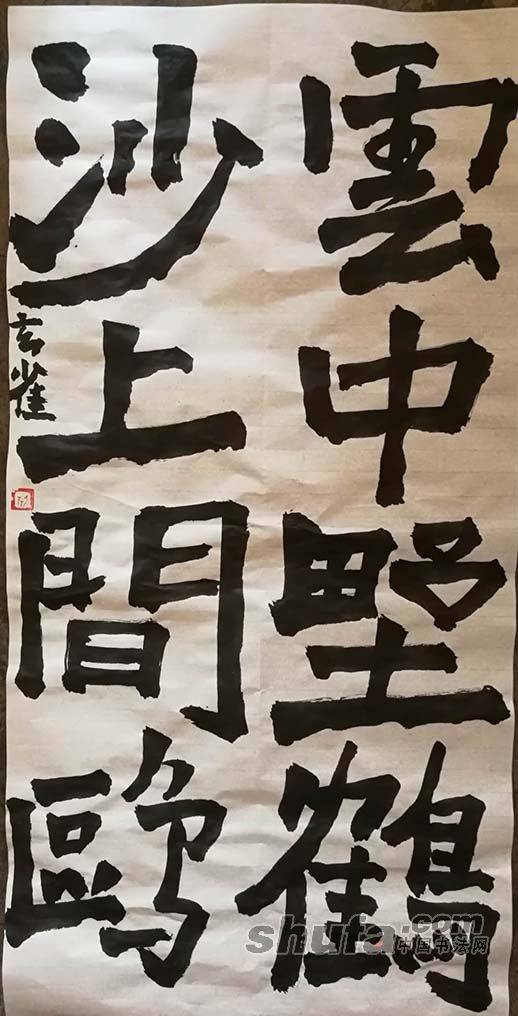 雲中墅鶴
沙上間鷗
玄雀
shufa.com
中国书法网